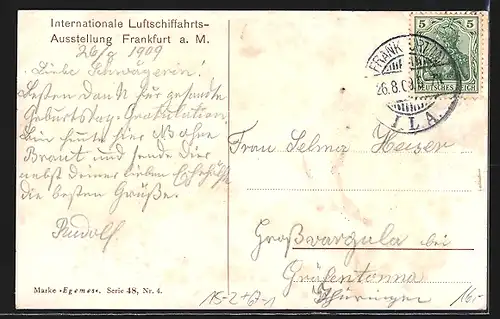 Internationale Luftschiffahrts-
Ausstellung Frankfurt a. M.
26/8 1909
Liebe Schwägerin!
Besten Dank für gesandte
Geburtstags-Gratulation.
Bin heute hier
Braut und sende Dir
nebst Deiner lieben
die besten Grüße.
Rudolf
Marke »Egemes«. Serie 48, Nr. 4.
5 5
DEUTSCHES REICH
FRANKFURT
26.8.09
I.L.A.
Frau Selma Heiser
Großvargula bei
Gräfentonna
Thüringen
16.-